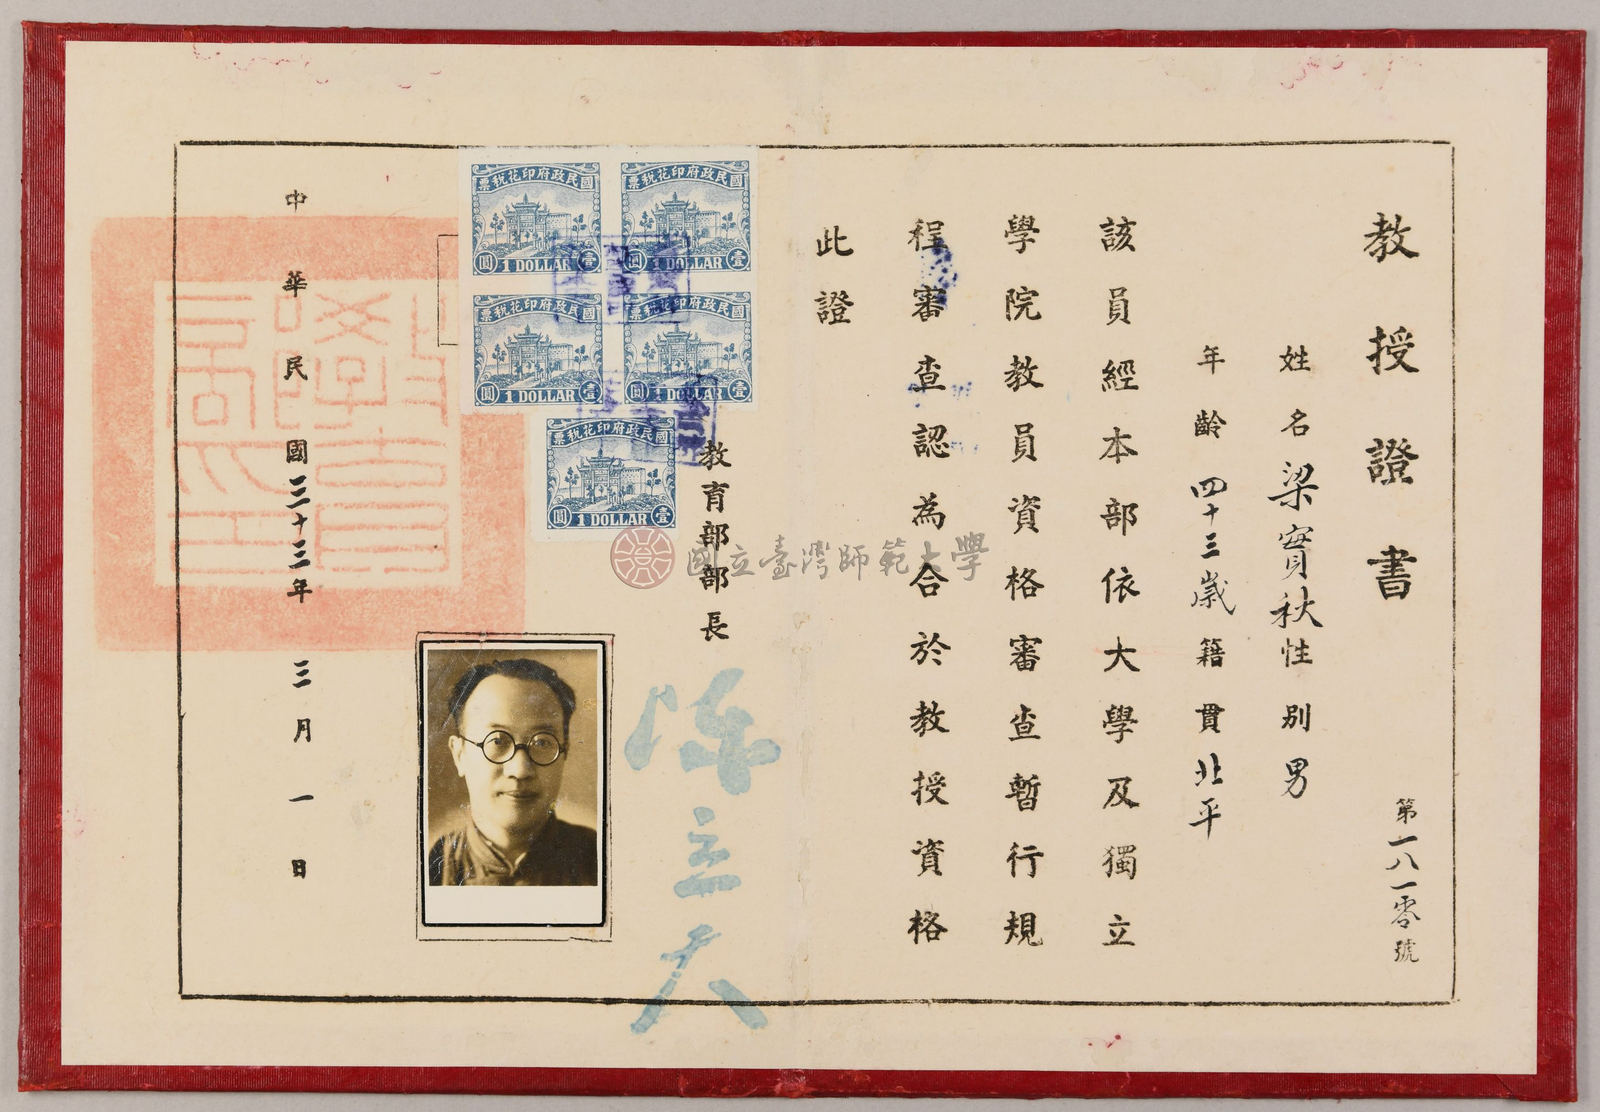 教授證書
第一八一零號
姓名梁實秋性別男
年齡四十三歲籍貫北平
該員經本部依大學及獨立
學院教員資格審查暫行規
程審查認為合於教授資格
此證
教育部部長
陳立夫
中華民國三十三年三月一日
國民政府印花稅票
壹 1 DOLLAR 圓
國民政府印花稅票
壹 1 DOLLAR 圓
國民政府印花稅票
壹 1 DOLLAR 圓
國民政府印花稅票
壹 1 DOLLAR 圓
國民政府印花稅票
壹 1 DOLLAR 圓
教育部印
國立臺灣師範大學